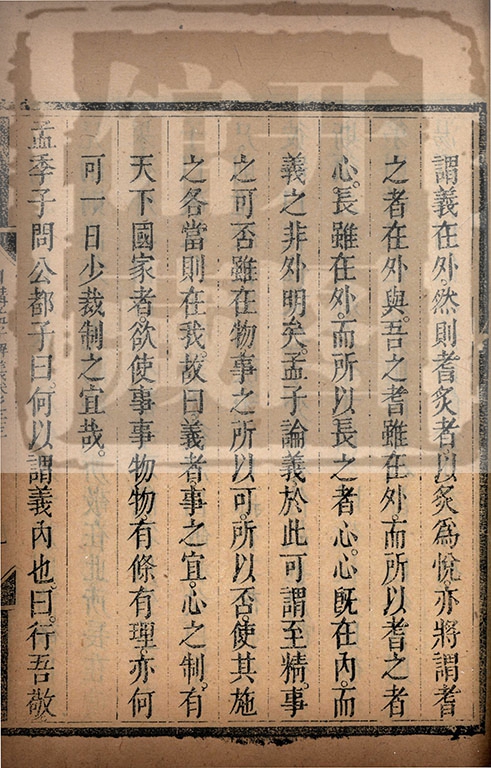 謂義在外。然則耆炙者以炙爲悅。亦將謂耆
之者在外與。吾之耆雖在外。而所以耆之者
心。長雖在外。而所以長之者心。心既在內。而
義之非外明矣。孟子論義於此可謂至精。事
之可否雖在物。事之所以可。所以否。使其施
之各當則在我。故曰義者事之宜。心之制。有
天下國家者。欲使事事物物。有條有理。亦何
可一日少裁制之宜哉。
孟季子問公都子曰。何以謂義內也。曰。行吾敬